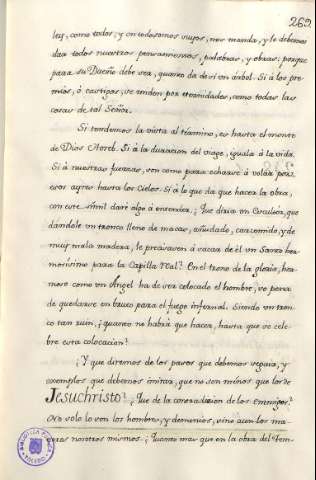 262
ley, como todos; y en todos somos suyos, nos manda, y le debemos
dar todos nuestros pensamientos, palabras, y obras: porque
para su Dueño debe ser, quanto dá de sí un arbol. Si á los pre-
mios, ó castigos, se miden por eternidades, como todas las
cosas de tal Señor.
Si tendemos la vista al término, es hasta el monte
de Dios Horeb. Si á la duracion del viage, iguala á la vida.
Si á nuestras fuerzas, son como para echarse á volar por
esos ayres hasta los Cielos. Si á lo que dá que hacer la obra,
con este símil daré algo á entender. ¿Que diria un Escultor, que
dándole un tronco lleno de nudos, añudado, carcomido, y de
muy mala madera, le precisasen á sacar de él un Santo her-
mosísimo para la Capilla Real? En el trono de la gloria, her-
moso como un Angel ha de ser colocado el hombre, so pena
de quedarse en bruto para el fuego infernal. Siendo un tron-
co tan ruin, ¿quanto no habrá que hacer, hasta que se cele-
bre esta colocacion?
¿Y que diremos de los pasos que debemos seguir, y
exemplos que debemos imitar, que no son menos que los de
Jesuchristo? ¿Que de la contradicion de los enemigos?
No solo lo son los hombres, y demonios, sino aun los ma-
yores nosotros mismos. ¿Quanto mas que en la obra del Tem-